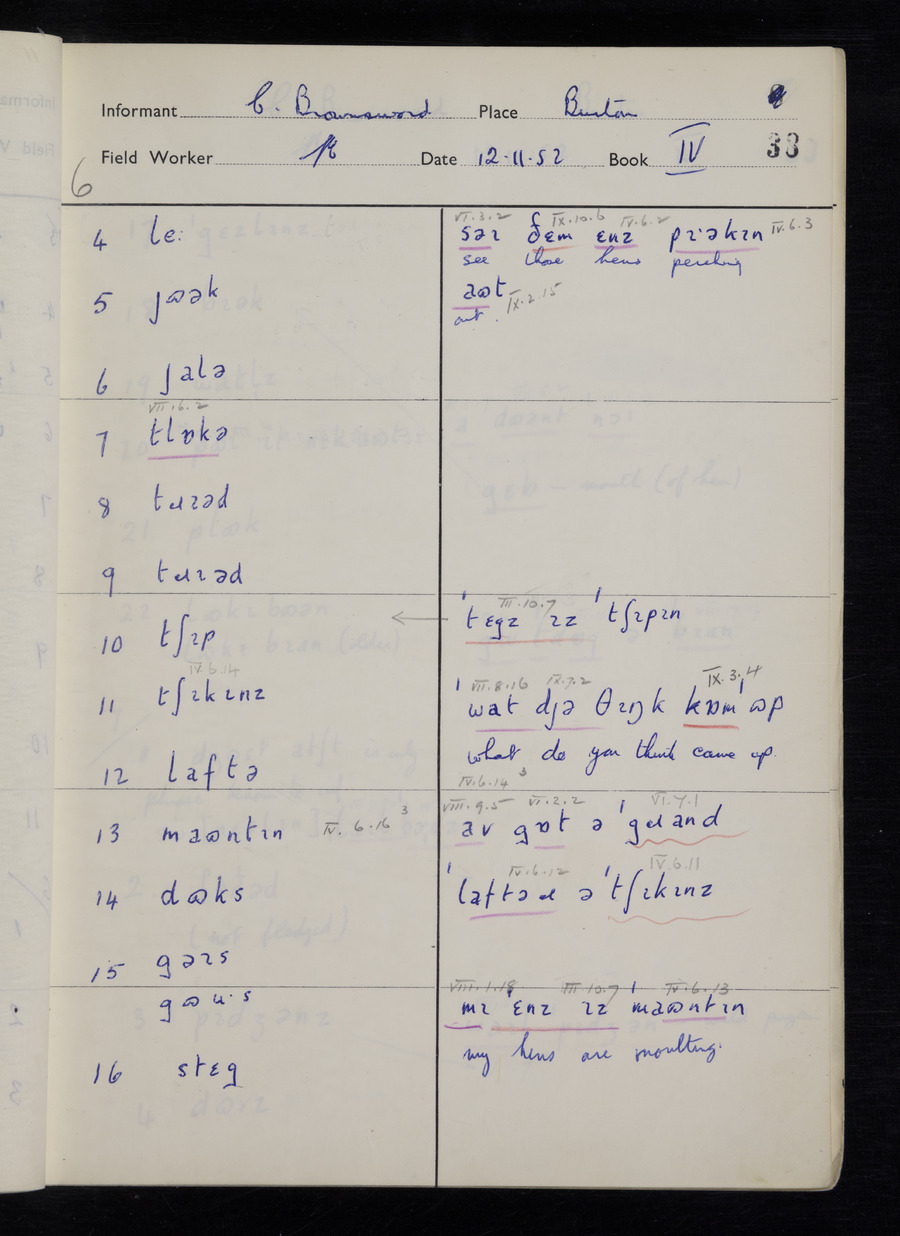 Informant C. Brownsword Place Burton
Field Worker Date 12.11.52 Book IV 33
6
4 le:
VI.3.2 IX.10.6 IV.6.2
səɪ ðɛm ɛnz pɪˑəkɪn IV.6.3
see those hens perching
5 jɷək
aɷt IX.2.15
out.
6 jalə
VII.6.2
7 tlɒkə
8 tɹɪəd
9 tɹɪəd
III.10.7
'tɛgz ɪz 'tʃɪpɪn
10 tʃɪp
IV.6.14
11 tʃɪkɪnz
VII.8.16 IX.7.2 IX.3.4
'wat djə θɪŋk kɒm 'ɷp
what do you think came up.
12 laftə
IV.6.14 3
VIII.9.5 VI.2.2 VI.7.1
13 maɷntɪn IV.6.16 3
av gɒt ə 'gɹand
IV.6.12 IV.6.11
14 dɷks
'laftəɹ ə 'tʃɪkɪnz
15 gəɪs
VIII.1.18 III.10.7 IV.6.13
gɷuˑs
mɪ 'ɛnz ɪz 'maɷntɪn
my hens are moulting.
16 stɛg